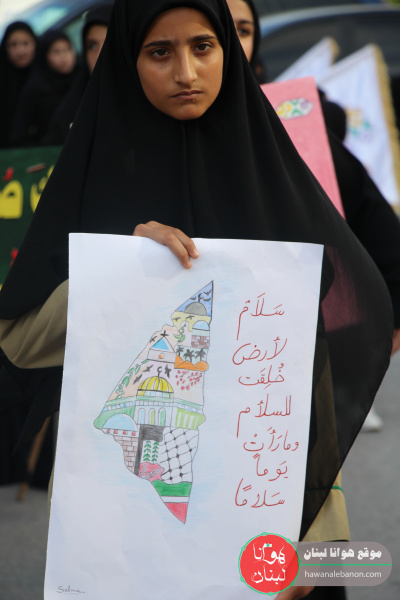 سَلَامٌ
لأرضٍ
خُلِقَت
للسلام
وما رأت
يوماً
سَلامًا
Salma
هوانا لبنان
موقع هوانا لبنان
hawanalebanon.com